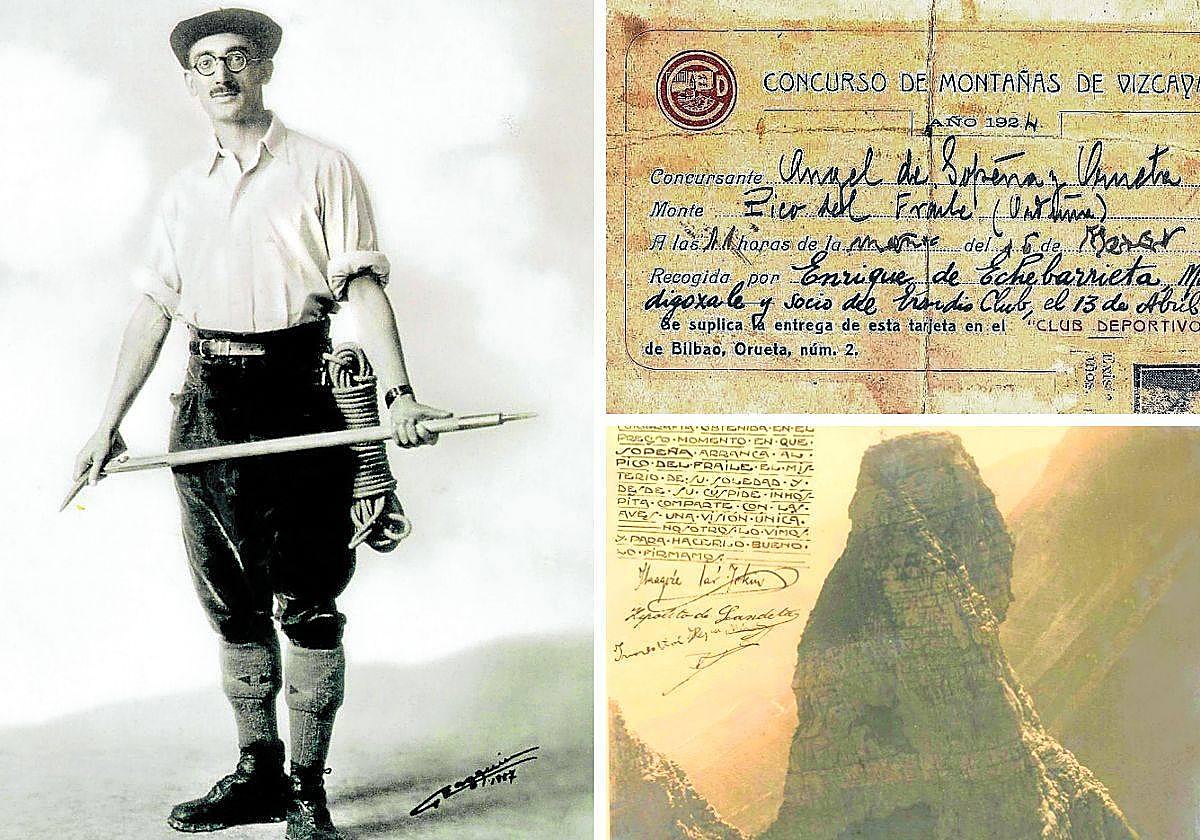 CONCURSO DE MONTAÑAS DE VIZCAYA
AÑO 1924
Concursante Angel de Sopeña y Orueta
Monte Pico del Fraile (Orduña)
A las 11 horas de la del 16 de
Recogida por Enrique de Echebarrieta,
y socio del Club, el 13 de Abril
Se suplica la entrega de esta tarjeta en el "CLUB DEPORTIVO
de Bilbao, Orueta, núm. 2.
OBTENIDA EN EL
PRECISO MOMENTO EN QUE
SOPEÑA ARRANCA AL
PICO DEL FRAILE EL MIS-
TERIO DE SU SOLEDAD Y
DESDE SU CÚSPIDE INHOS-
PITA COMPARTE CON LAS
AVES UNA VISIÓN ÚNICA.
NOSOTROS LO VIMOS
Y PARA HACERLO BUENO
LO FIRMAMOS.
Hipolito de